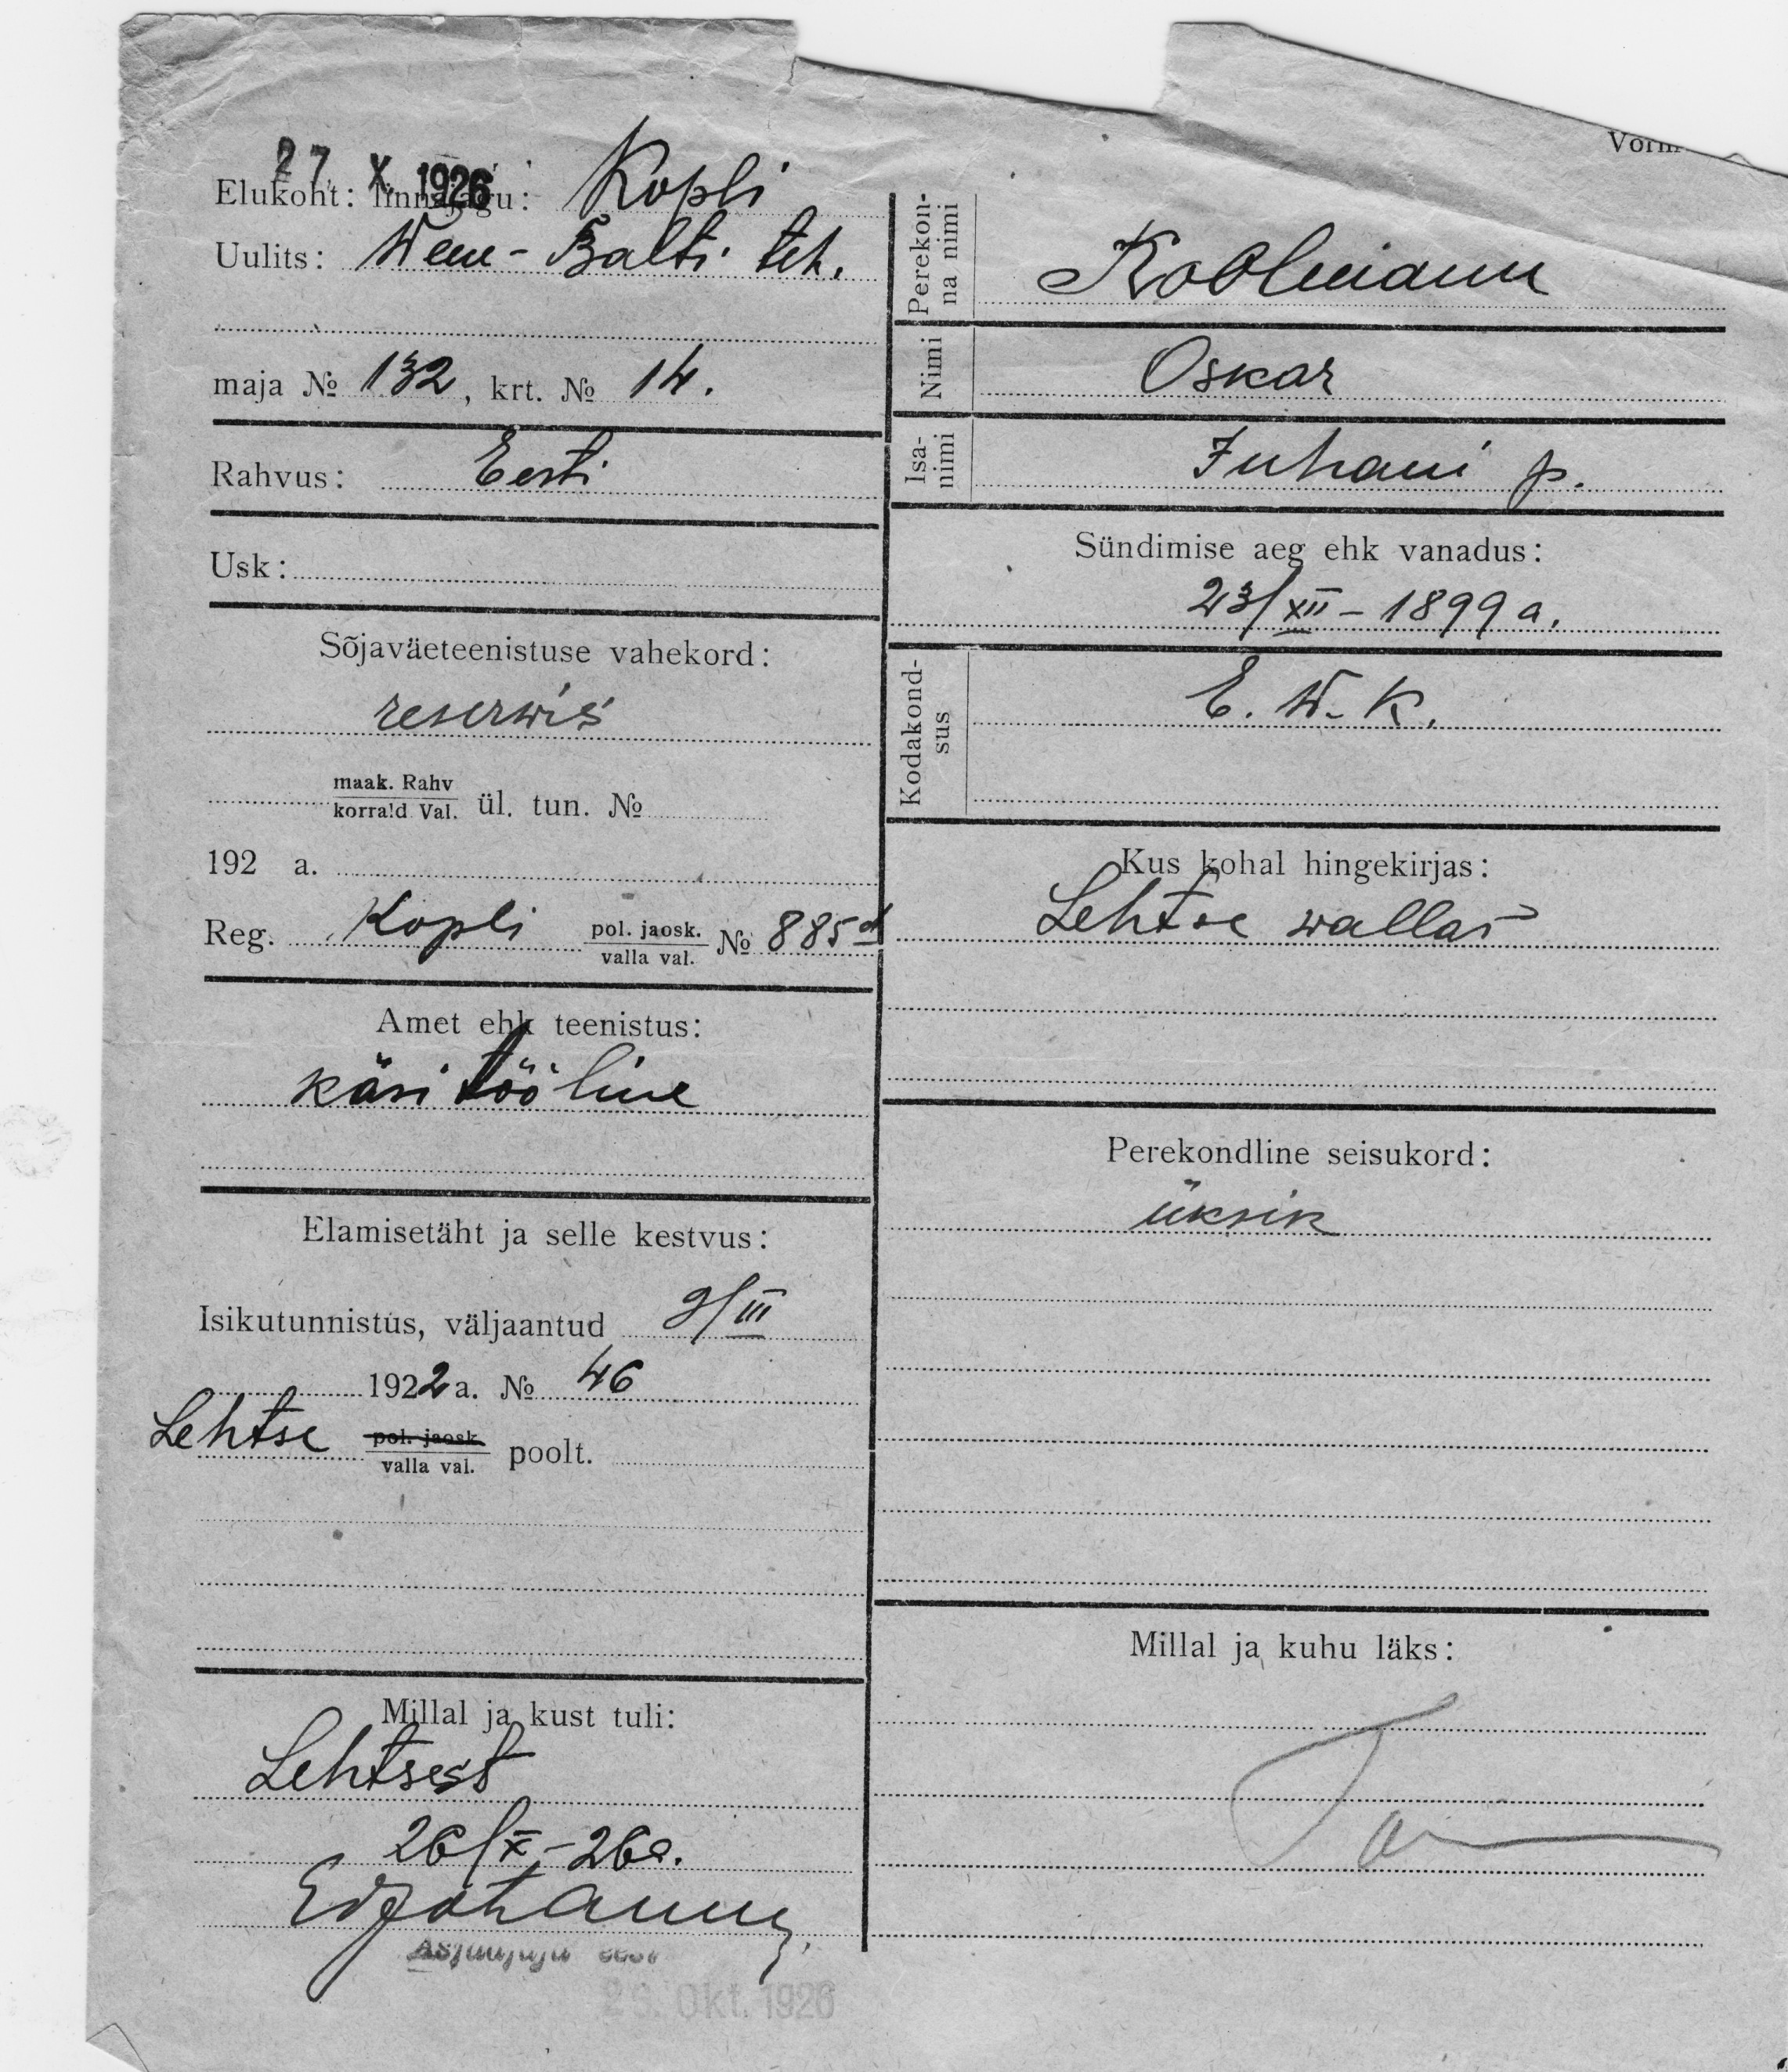 27. X. 1926
Elukoht: linnajagu: Kopli
Uulits: Wene-Balti teh.
maja № 132, krt. № 14.
Rahvus: Eesti
Usk:
Sõjaväeteenistuse vahekord:
reserwis
maak. Rahv
korrald Val. ül. tun. №
192 a.
Reg. Kopli pol. jaosk. № 885
valla val.
Amet ehk teenistus:
käsitööline
Elamisetäht ja selle kestvus:
Isikutunnistus, väljaantud 9/III
1922 a. № 46
Lehtse pol. jaosk. poolt.
valla val.
Millal ja kust tuli:
Lehtsest
26/X-26a.
Asjaajaja eest
29. Okt. 1926
Perekon-
na nimi
Koolmann
Nimi Oskar
Isa-
nimi
Juhani p.
Sündimise aeg ehk vanadus:
23/XII-1899 a.
Kodakond-
sus
E. W. K.
Kus kohal hingekirjas:
Lehtse wallas
Perekondline seisukord:
üksik
Millal ja kuhu läks: